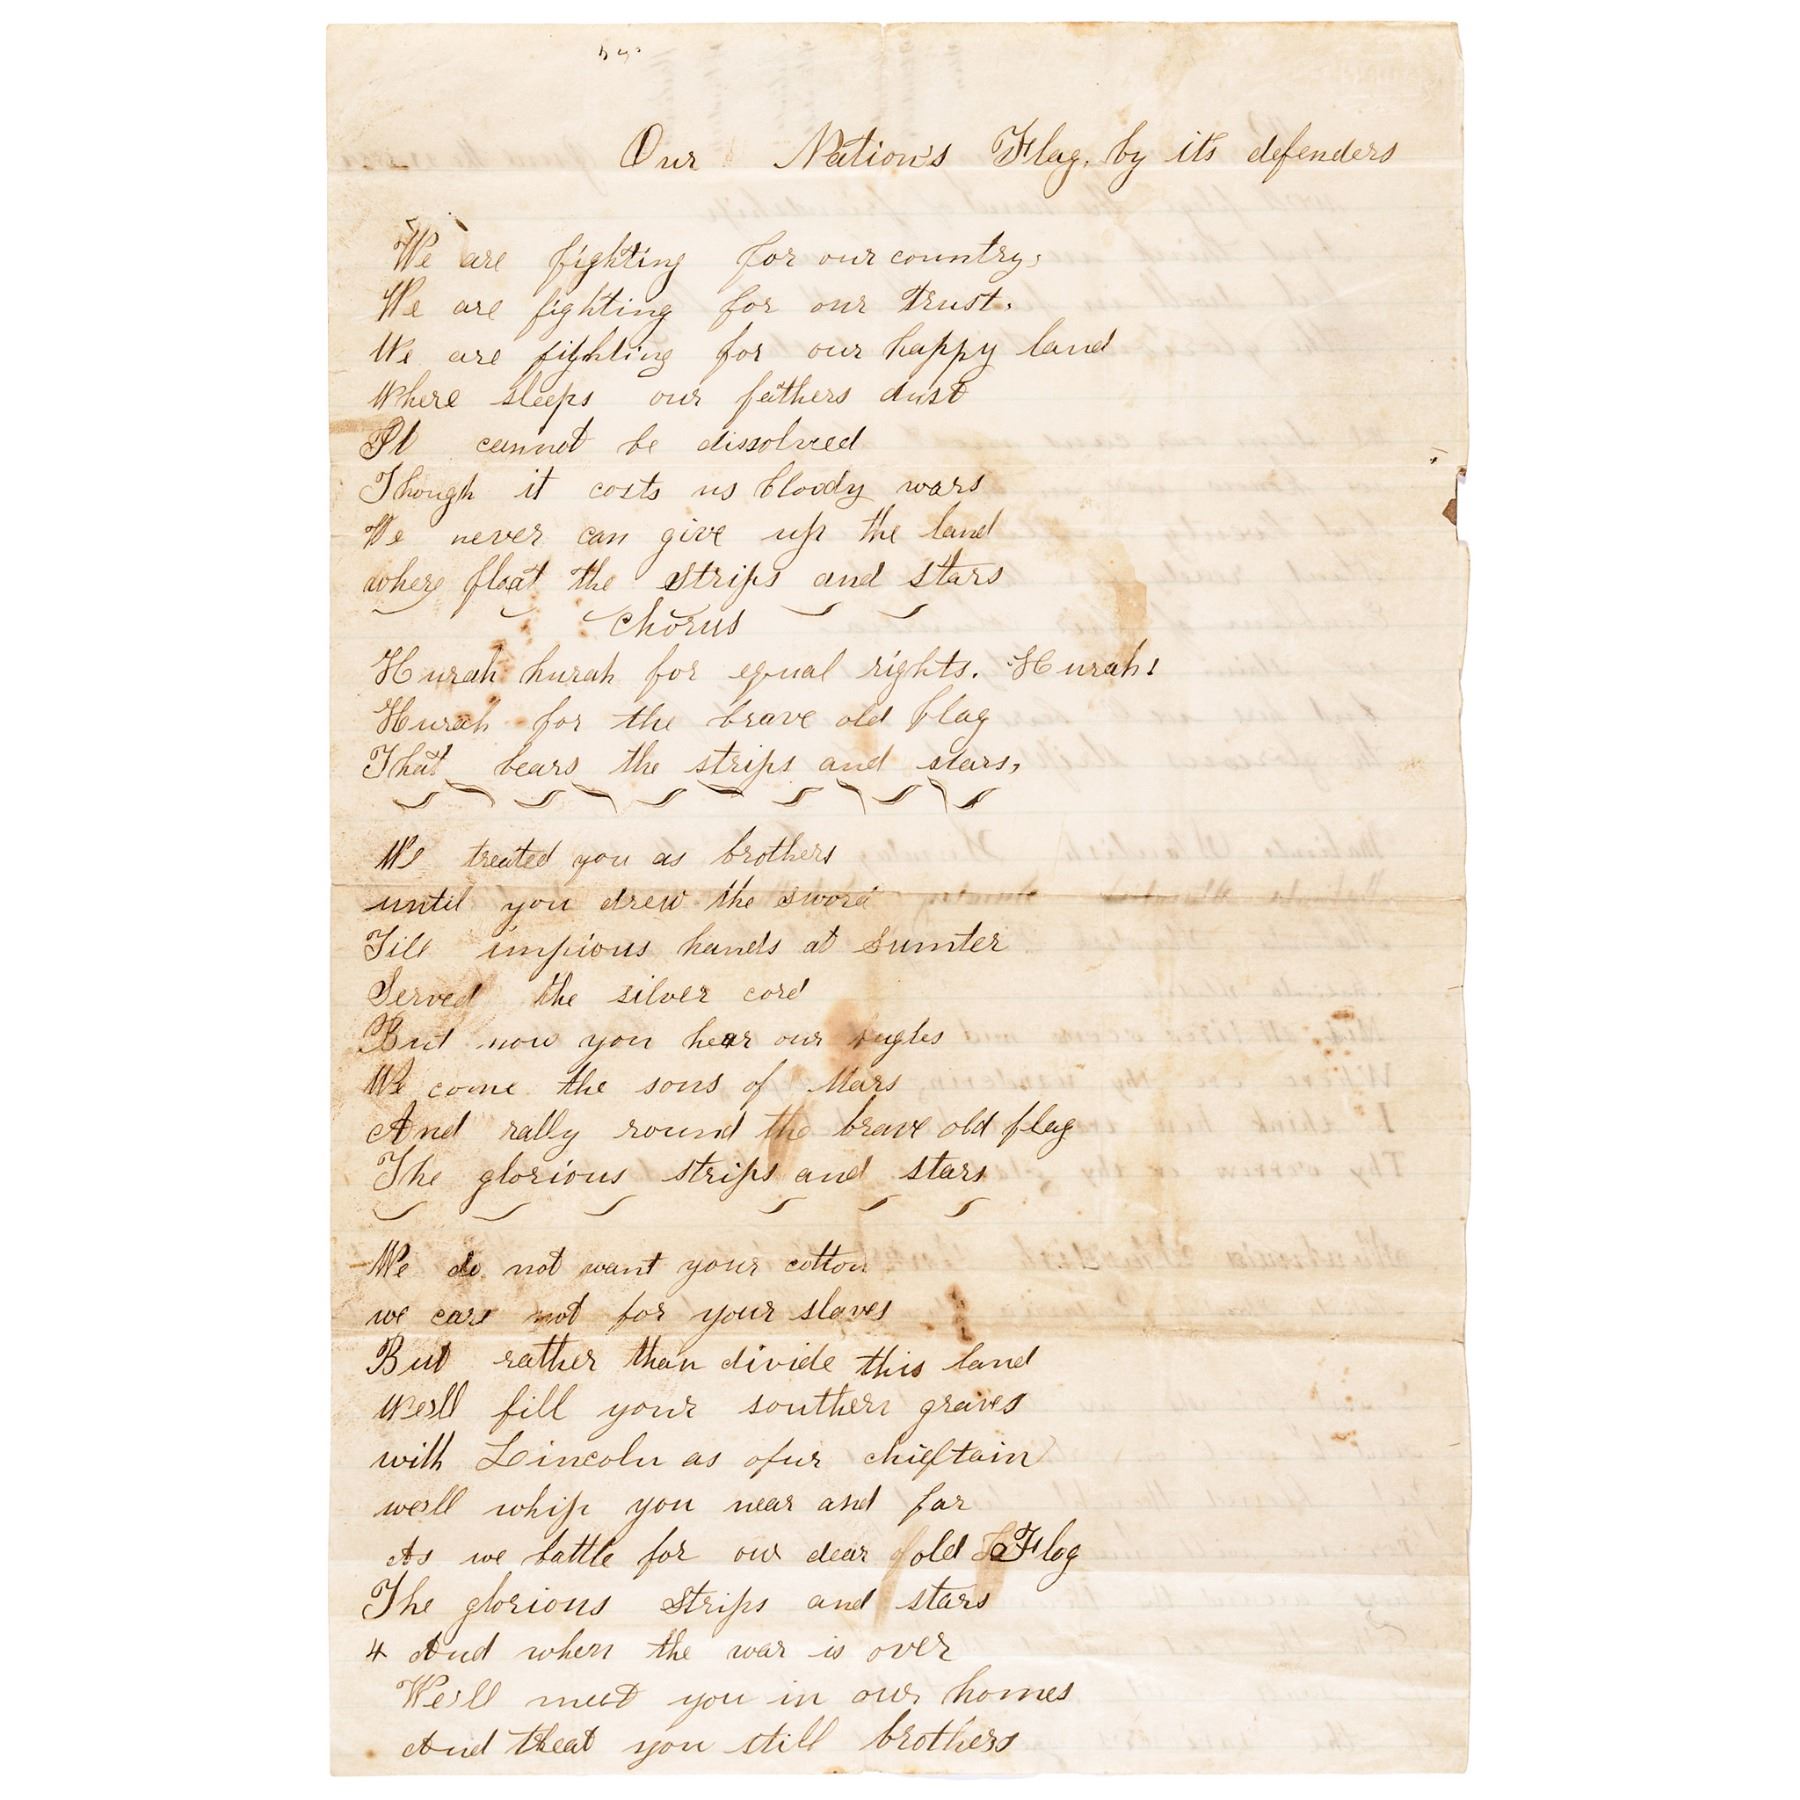 Our Nation's Flag, by its defenders
We are fighting for our country,
We are fighting for our trust.
We are fighting for our happy land
Where sleeps our fathers dust
It cannot be dissolved
Though it costs us bloody wars
We never can give up the land
where float the strips and stars
Chorus
Hurah hurah for equal rights. Hurah!
Hurah for the brave old flag
That bears the strips and stars,
We treated you as brothers
until you drew the sword
Till impious hands at Sumter
Served the silver cord
But now you hear our bugles
We come the sons of Mars
And rally round the brave old flag
The glorious strips and stars
We do not want your cotton
we care not for your slaves
But rather than divide this land
We'll fill your southern graves
with Lincoln as ofur chieftain
we'll whip you near and far
As we battle for our dear old Flag
The glorious strips and stars
4 And when the war is over
We'll meet you in our homes
And treat you still brothers